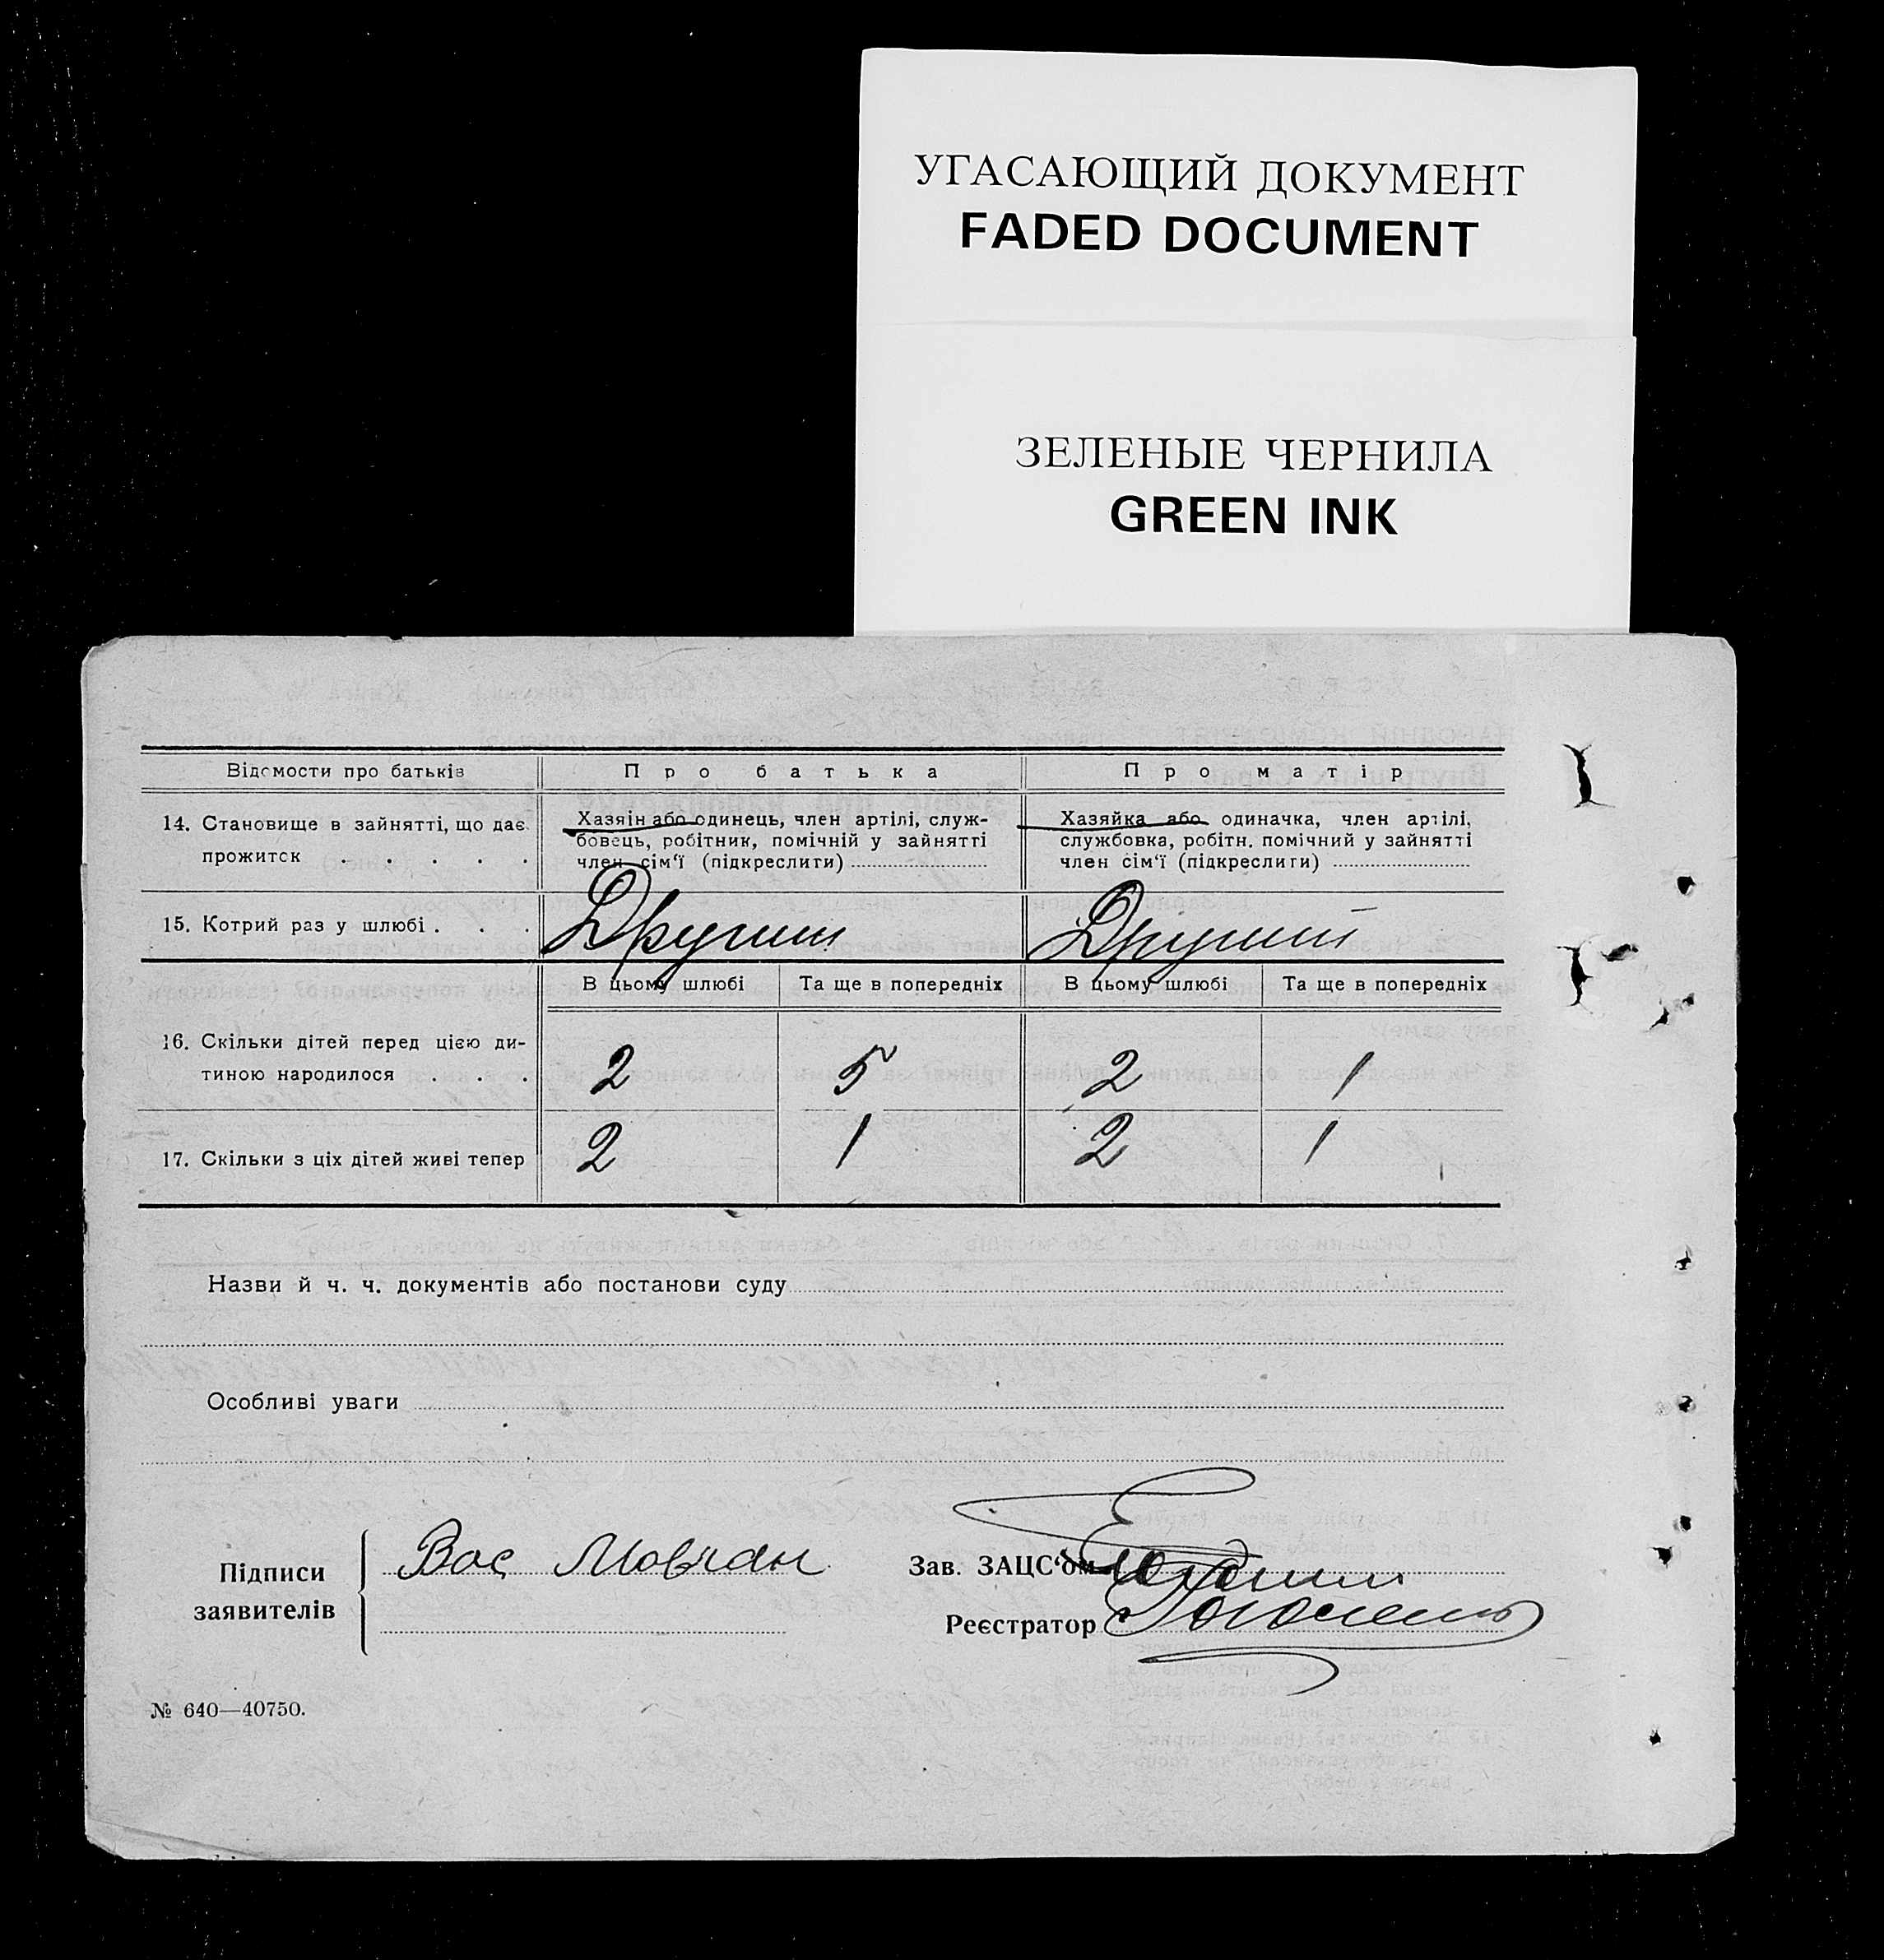 УГАСАЮЩИЙ ДОКУМЕНТ
FADED DOCUMENT
ЗЕЛЕНЫЕ ЧЕРНИЛА
GREEN INK
Відомости про батьків
Про батька
Про матір
14. Становище в зайнятті, що дає
прожиток . . . . .
Хазяін або одинець, член артілі, служ-
бовець, робітник, помічній у зайнятті
член сім‘ї (підкреслити)
Хазяйка або одиначка, член артілі,
службовка, робітн. помічний у зайнятті
член сім‘ї (підкреслити)
15. Котрий раз у шлюбі . . .
Другий
Другий
В цьому шлюбі
Та ще в попередніх
В цьому шлюбі
Та ще в попередніх
16. Скільки дітей перед цією ди-
тиною народилося . . .
2
5
2
1
17. Скільки з ціх дітей живі тепер
2
1
2
1
Назви й ч. ч. документів або постанови суду
Особливі уваги
Підписи
заявителів
Вас Мовчан
Зав. ЗАЦС‘ом
Реєстратор
№ 640—40750.